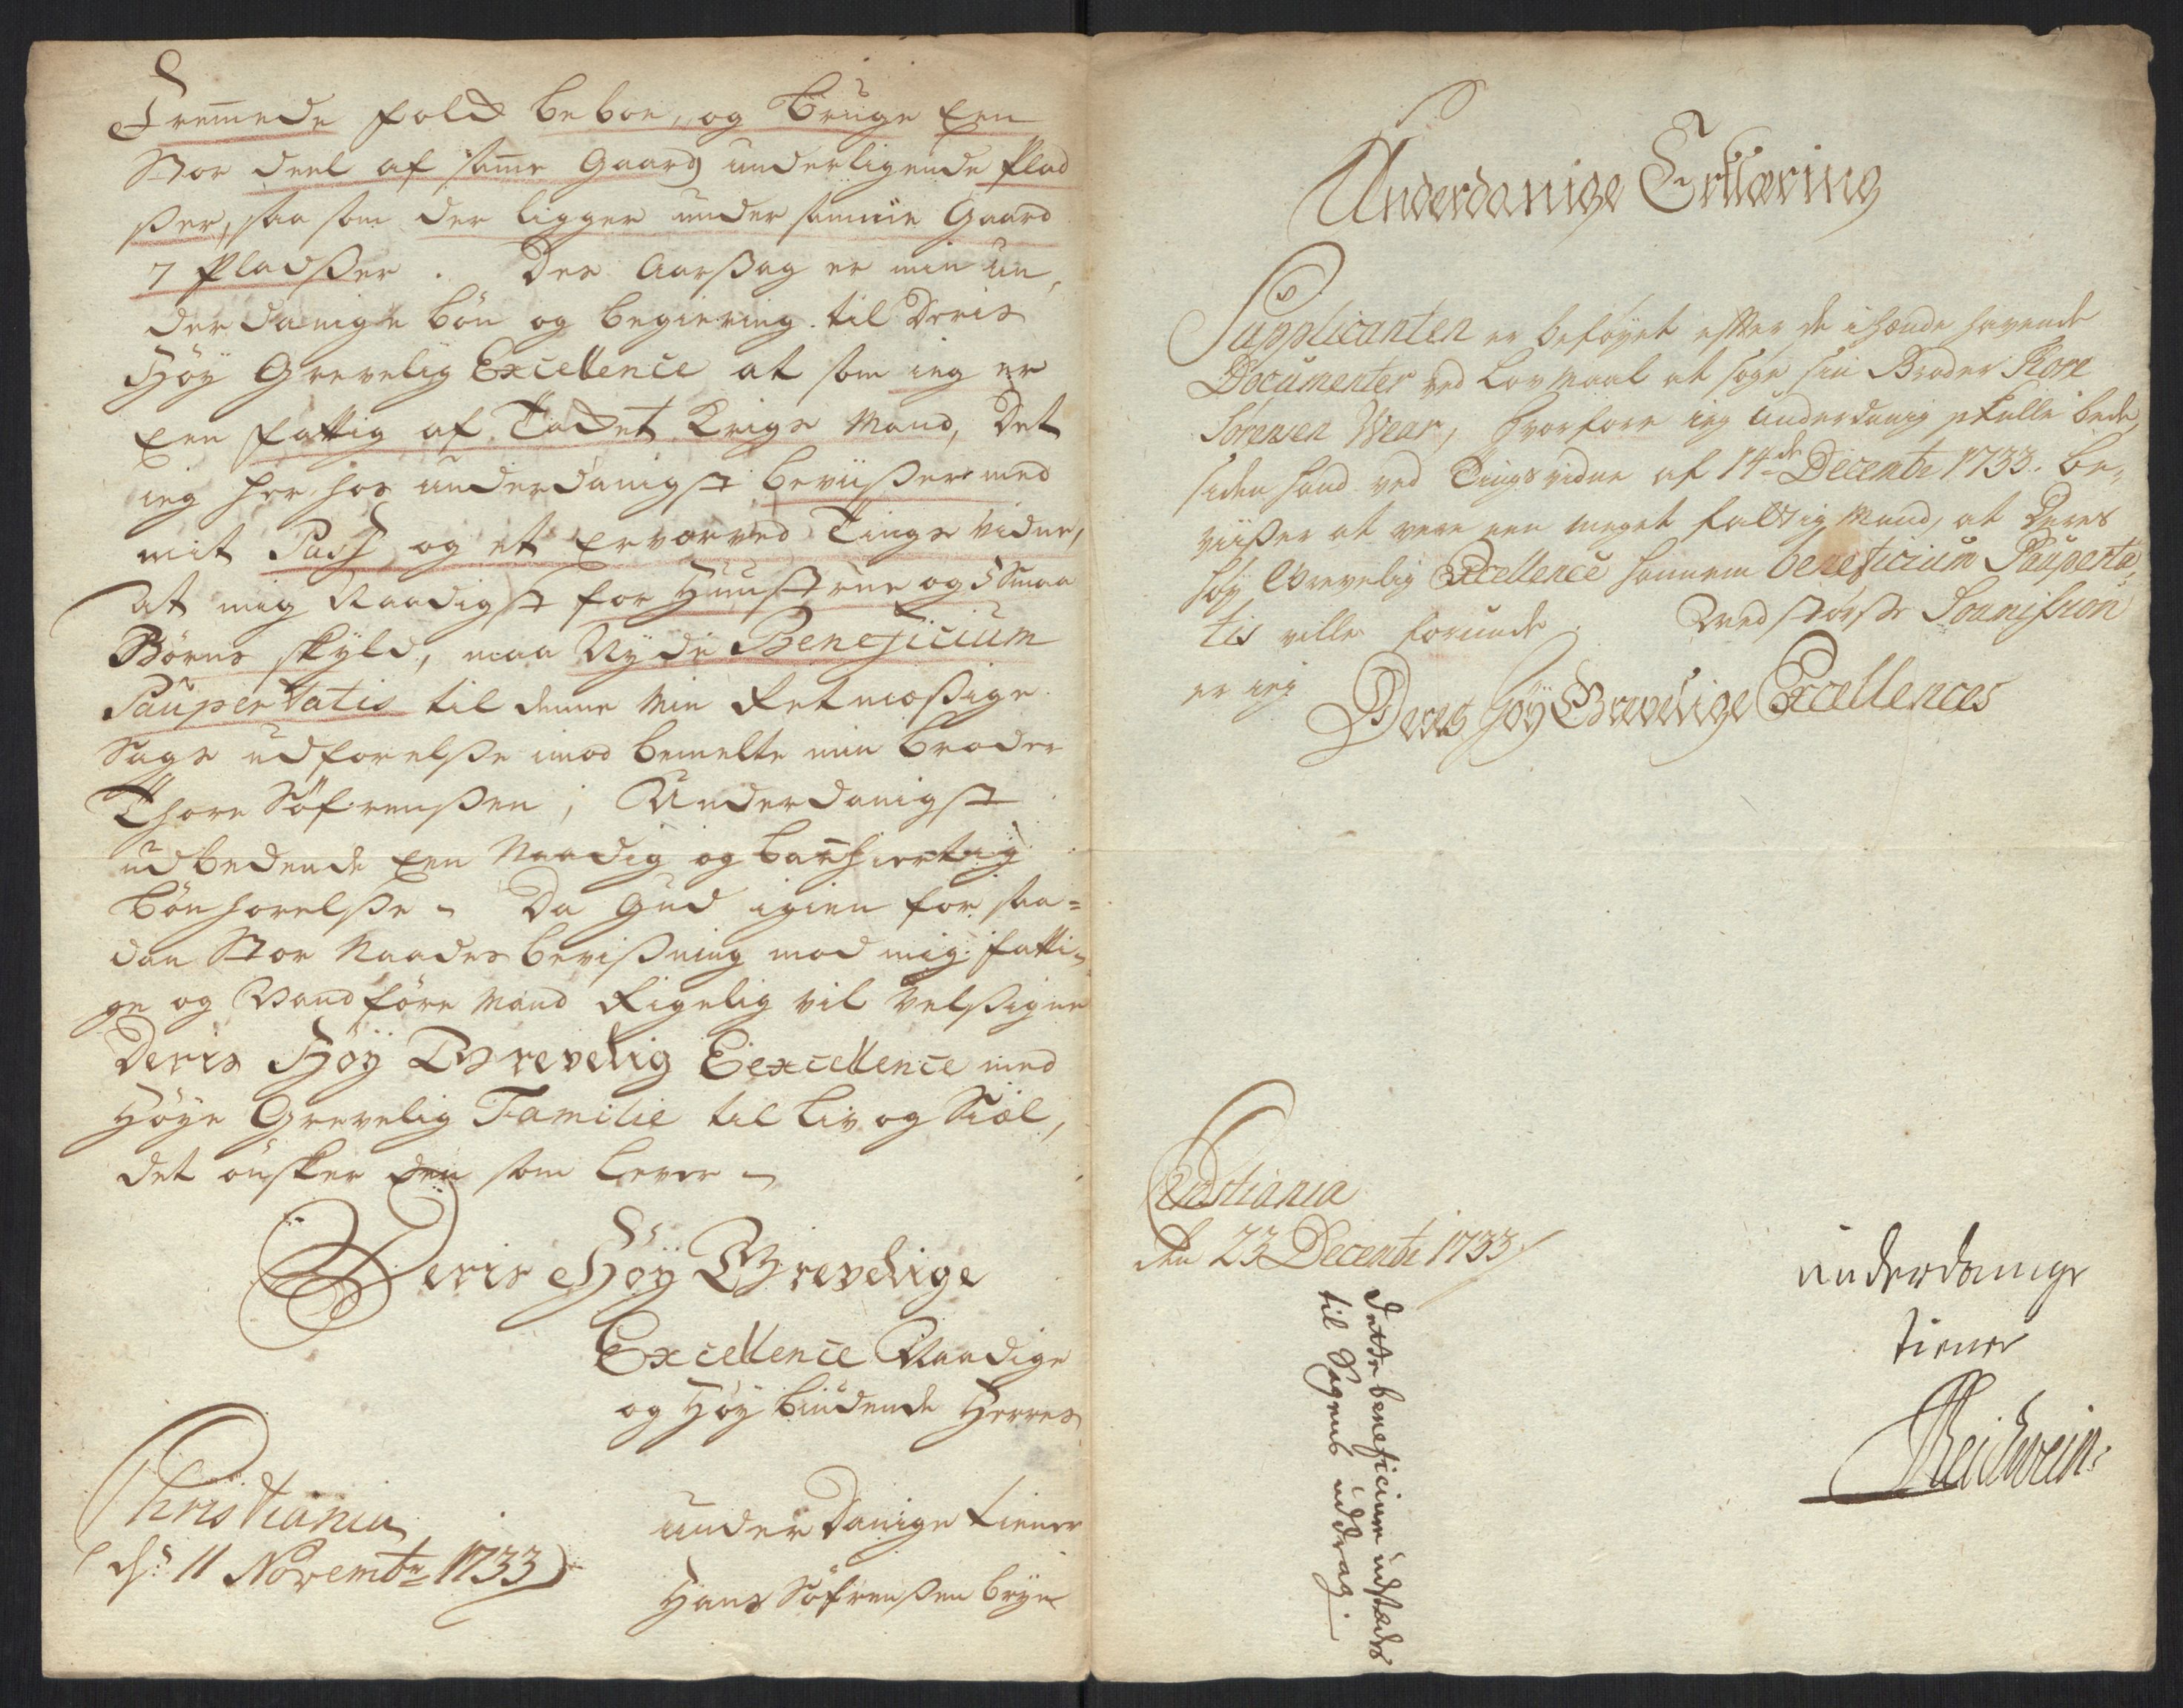 Fremmede folck beboe, og bruge Een
Stor deel af samme Gaard underligende Plad
ßer, saa som der ligger under samme Gaard
7 Pladßer. Des Aarßag er min un,
derdanige bön og begiering til Deris
Höy Grevelig Excellence at som ieg er
Een fattig af Tacket Krigs Mand, Det
ieg her hos underdanigst beviißer med
mit Pass og et Erværved Tings Vidne,
At mig Naadigst for Huustrue og Smaa
Börns skyld, maa Nyde Beneficium
Paupertatis til denne Min Retmæßige
Sags udförelße imod bemelte min broder
Thore Söfrenßen; Underdanigst
udbedende Een Naadig og barmhiertig
bönhörelße – Da Gud igien for saa=
dan Stor Naades beviißning mod mig fatti-
ge og Vandföre Mand Rigelig vil Velßigne
Deris Höy Grevelig Eexcellence med
Höye Grevelig Familie til Liv og Siæl,
det önsker den som lever –
Deris Höy Grevelige
Excellence Naadige
og Höy biudende Herres
Christiania
ds: 11 Novembr 1733
underdanige tiener
Hans Söfrenßen Brye
Underdanige Erklæring
Supplicanten er beföyet efter de i hænde havende
Documenter ved Lovmaal at söge sin Broder Tore
Sörensen Wear, hvorfore ieg underdanig skulle bede,
siden hand ved Tingsvidne af 14de Decembr 1733. be,
viißer at være een meget fattig Mand, at Deres
höy Grevelig Excellence hannem beneficium Pauperta,
tis ville forunde. Med störste Soumission
er ieg
Deres Höy Grevelige Excellences
Christiania
den 23 Decembr 1733
underdanige
tiener
Reichwein.
Dette beneficium udstædes
til Sagens uddrag.